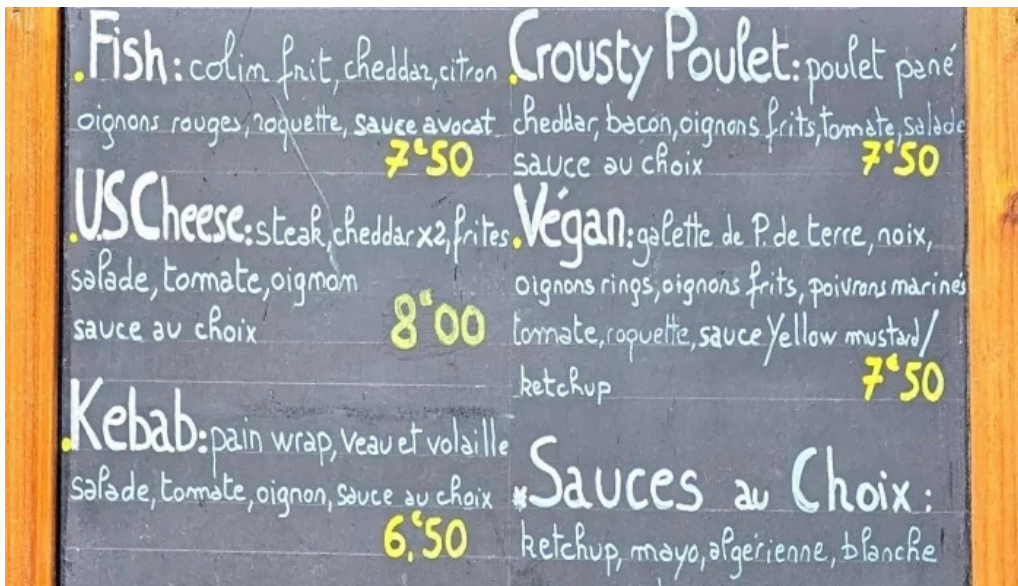 .Fish: colin frit, cheddar, citron
oignons rouges, roquette, sauce avocat
7€50
.US Cheese: steak, cheddar x2, frites
salade, tomate, oignon
sauce au choix 8€00
.Kebab: pain wrap, veau et volaille
salade, tomate, oignon, sauce au choix
6,€50
.Crousty Poulet: poulet pané
cheddar, bacon, oignons frits, tomate, salade
sauce au choix 7€50
.Végan: galette de P. de terre, noix,
oignons rings, oignons frits, poivrons marinés
tomate, roquette, sauce Yellow mustard/
ketchup 7€50
*Sauces au Choix:
ketchup, mayo, algérienne, blanche